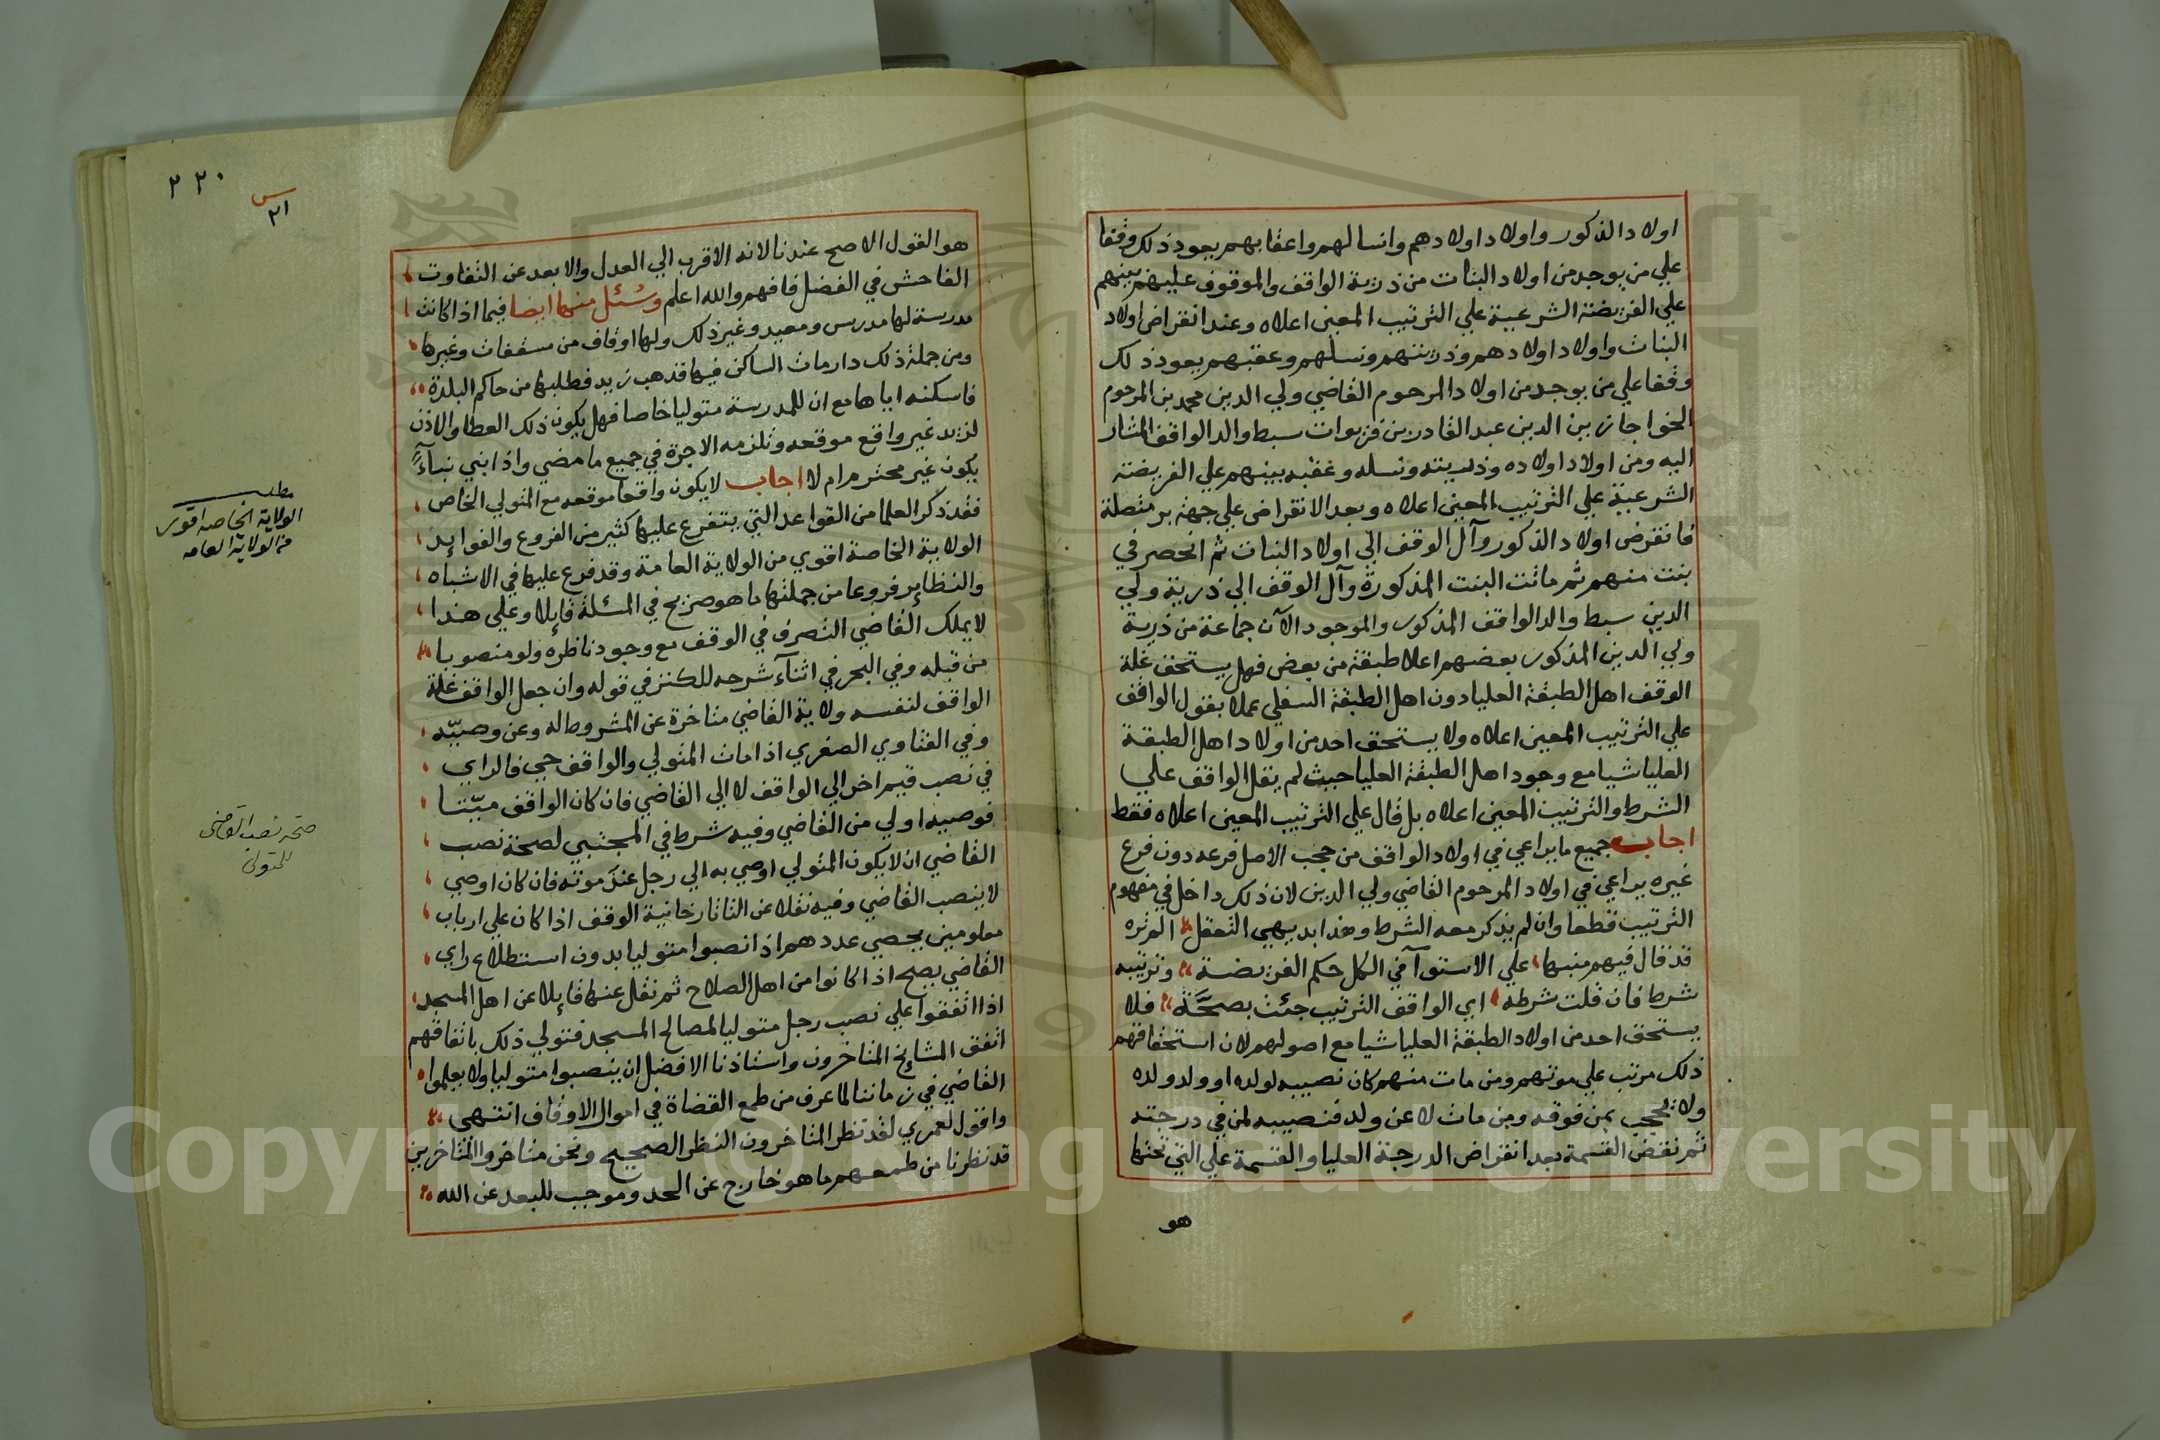 اولاد الذكور واولاد اولادهم وانسالهم واعقابهم يعود ذلك وقفا
علي من يوجد من اولاد البنات من ذرية الواقف والموقوف عليهم بينهم
علي الفريضة الشرعية علي الترتيب المعين اعلاه وعند انقراض اولاد
البنات واولاد اولادهم وذريتهم ونسلهم وعقبهم يعود ذلك
وقفا علي من يوجد من اولاد المرحوم القاضي ولي الدين محمد بن المرحوم
الخواجا زين الدين عبد القادر بن سبط والد الواقف المشار
اليه ومن اولاد اولاده وذريته ونسله وعقبه بينهم علي الفريضة
الشرعية علي الترتيب المعين اعلاه وبعد الانقراض علي جهة بر متصلة
فانقرض اولاد الذكور وآل الوقف الي اولاد البنات ثم انحصر في
بنت منهم ثم ماتت البنت المذكورة وآل الوقف الي ذرية ولي
الدين سبط والد الواقف المذكور والموجود الآن جماعة من ذرية
ولي الدين المذكور بعضهم اعلا طبقة من بعض فهل يستحق غلة
الوقف اهل الطبقة العليا دون اهل الطبقة السفلي عملا بقول الواقف
علي الترتيب المعين اعلاه ولا يستحق احد من اولاد اهل الطبقة
العليا شيا مع وجود اهل الطبقة العليا حيث لم يقل الواقف علي
الشرط والترتيب المعين اعلاه بل قال علي الترتيب المعين اعلاه فقط
اجاب جميع ما يراعي في اولاد الواقف من حجب الاصل فرعه دون فرع
غيره يراعي في اولاد المرحوم القاضي ولي الدين لان ذلك داخل في مفهوم
الترتيب قطعا وان لم يذكر معه الشرط وهذا بديهي التعقل الم تره
قد قال فيهم منبها علي الاستوآ في الكل حكم الفريضة وترتيبه
شرط فان قلت شرطه اي الواقف الترتيب جئت بصحة فلا
يستحق احد من اولاد الطبقة العليا شيا مع اصولهم لان استحقاقهم
ذلك مرتب علي موتهم ومن مات منهم كان نصيبه لولده او ولد ولده
ولا يحجب بمن فوقه ومن مات لا عن ولد فنصيبه لمن في درجته
ثم تنقض القسمة بعد انقراض الدرجة العليا والقسمة علي التي تحتها
هو
٢٢٠
س
٢١
هو القول الاصح عندنا لانه الاقرب الي العدل والابعد عن التفاوت
الفاحش في الفضل فافهم والله اعلم وسئل منها ايضا فيما اذا كانت
مدرسة لها مدرس ومعيد وغير ذلك ولها اوقاف من مسقفات وغيرها
ومن جملة ذلك دار مات الساكن فيها فذهب زيد فطلبها من حاكم البلدة
فاسكنه اياها مع ان للمدرسة متوليا خاصا فهل يكون ذلك العطا والاذن
لزيد غير واقع موقعه وتلزمه الاجرة في جميع ما مضي واذا بني بنآء
يكون غير محترم ام لا اجاب لا يكون واقعا موقعه مع المتولي الخاص
فقد ذكر العلما من القواعد التي يتفرع عليها كثير من الفروع والفوايد
الولاية الخاصة اقوي من الولاية العامة وقد فرع عليها في الاشباه
والنظاير فروعا من جملتها ما هو صريح في المسئلة قايلا وعلي هذا
لا يملك القاضي التصرف في الوقف مع وجود ناظره ولو منصوبا
من قبله وفي البحر في اثنآء شرحه للكنز في قوله وان جعل الواقف غلة
الواقف لنفسه ولاية القاضي متاخرة عن المشروط له وعن وصيّه
وفي الفتاوي الصغري اذا مات المتولي والواقف حي فالراي
في نصب قيم اخر الي الواقف لا الي القاضي فان كان الواقف ميّتا
فوصيه اولي من القاضي وفيه شرط في المجتبي لصحة نصب
القاضي ان لا يكون المتولي اوصي به الي رجل عند موته فان كان اوصي
لا ينصب القاضي وفيه نقلا عن التاتارخانية الوقف اذا كان علي ارباب
معلومين يحصي عددهم اذا نصبوا متوليا بدون استطلاع راي
القاضي يصح اذا كانوا من اهل الصلاح ثم نقل عنها قايلا عن اهل المسجد
اذا اتفقوا علي نصب رجل متوليا لمصالح المسجد فتولي ذلك باتفاقهم
اتفق المشايخ المتاخرون واستاذنا الافضل ان ينصبوا متوليا ولا يعلموا
القاضي في زماننا لما عرف من طمع القضاة في اموال الاوقاف انتهي
واقول لعمري لقد نظر المتاخرون النظر الصحيح ونحن متاخروا المتاخرين
قد نظرنا من طمعهم ما هو خارج عن الحد وموجب للبعد عن الله
مطلب
الولاية الخاصه اقوى
من الولاية العامه
صحة نصب القاضى
للمتولى
Copyright © King Saud University